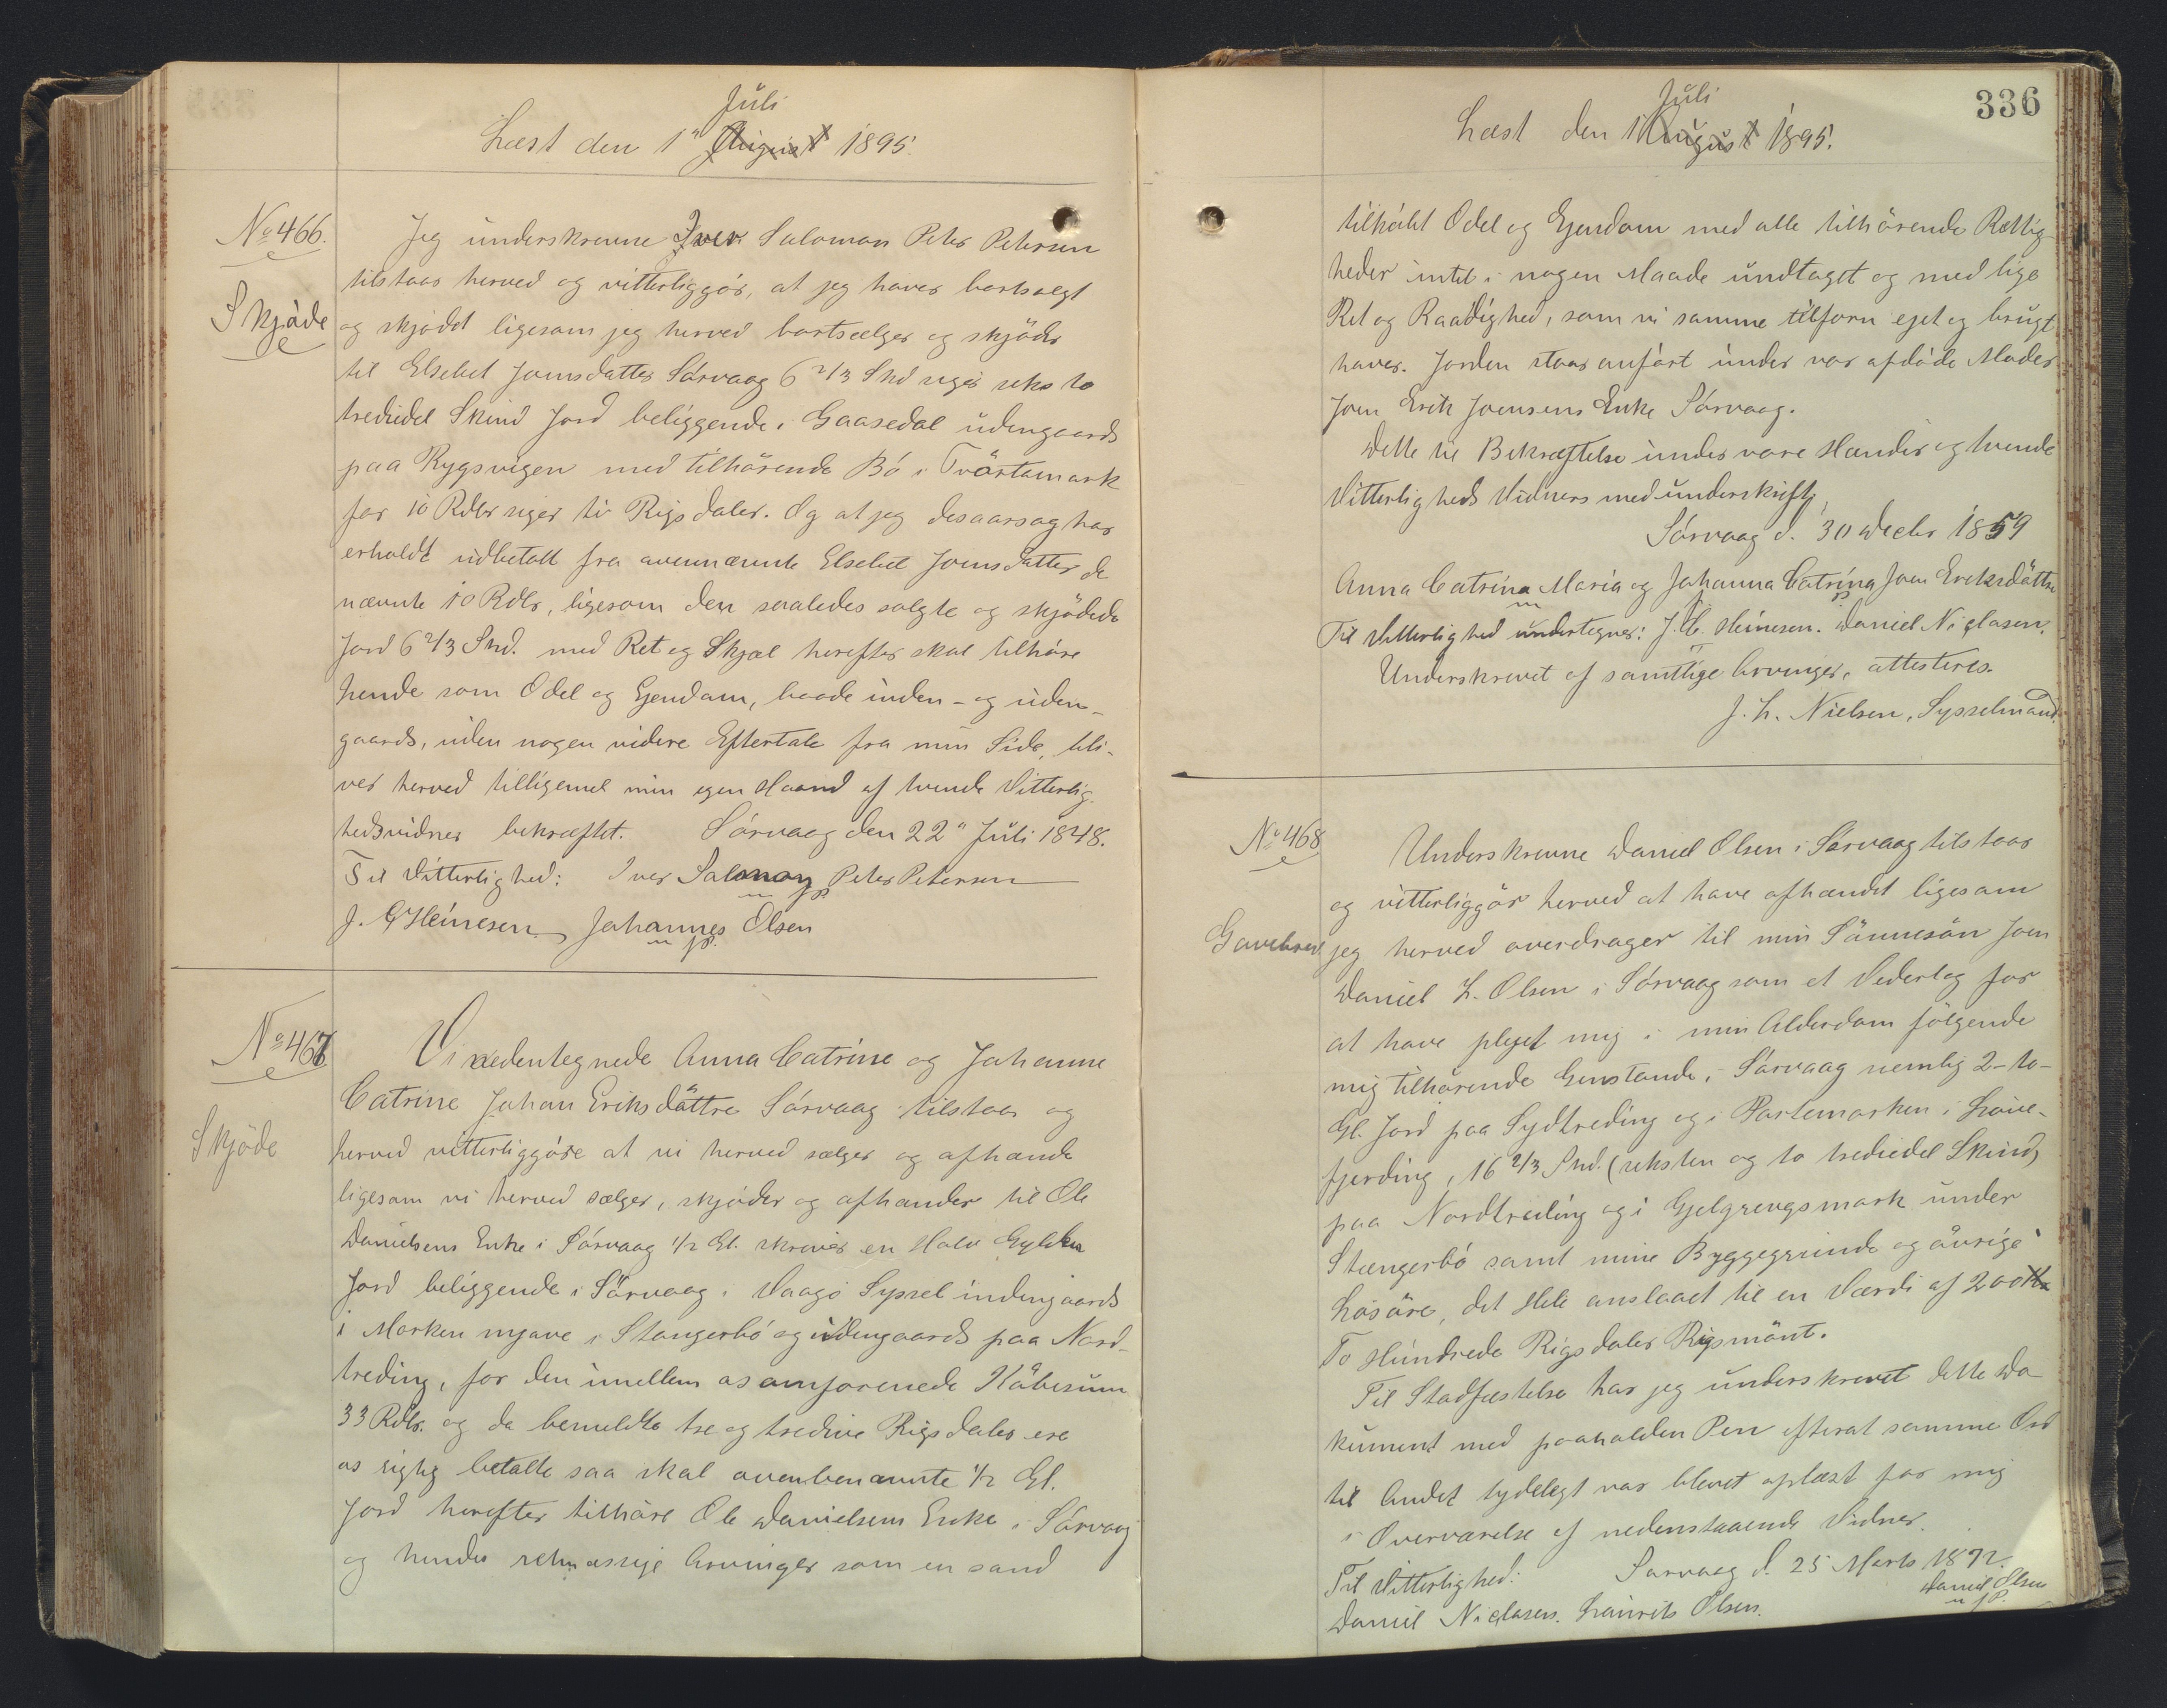 Juli
Læst den 1" August 1895.
No 466.
Skjøde
Jeg underskrevne Iver Salomon Peter Petersen
tilstaar herved og vitterliggør, at jeg haver bortsolgt
og skjødet ligesom jeg herved bortsælger og skjøder
til Elsebet Joensdatter Sørvaag 6 2/3 Skd siger seks to
trediedel Skind Jord beliggende i Gaasedal udengaards
paa Rygsvigen med tilhørende Bø i Tvørtamark
for 10 Rdlr siger ti Rigsdaler. Og at jeg desaarsag har
erholdt udbetalt fra ovennævnte Elsebet Joensdatter de
nævnte 10 Rdlr, ligesom den saaledes solgte og skjødede
Jord 6 2/3 Skd. med Ret og Skjæl herefter skal tilhøre
hende som Odel og Ejendom, baade inden- og uden-
gaards, uden nogen videre Eftertale fra min Side, bli-
ver herved tilligemed min egen Haand af tvende Vitterlig-
hedsvidner bekræftet. Sørvaag den 22" Juli 1848.
Til Vitterlighed: Iver Salomon Peter Petersen
m p.
J. G Heinesen Johannes Olsen
m p.
No 467
Skjøde
Vi nedentegnede Anna Catrine og Johanne
Catrine Johan Eriksdøttre Sørvaag tilstaa og
herved vitterliggøre at vi herved sælger og afhænde
ligesom vi herved sælger, skjøder og afhænder til Ole
Danielsens Enke i Sørvaag 1/2 Gl. skriver en Halv Gylden
Jord beliggende i Sørvaag i Vaagø Syssel indengaards
i Marken myave i Stangerbø og udengaards paa Nord-
treding, for den imellem os omforenede Købesum
33 Rdlr. og da bemeldte tre og tredive Rigsdaler ere
os rigtig betalte saa skal ovenbenævnte 1/2 Gl.
Jord herefter tilhøre Ole Danielsens Enke i Sørvaag
og hendes retmæssige Arvinger som en sand
336
Juli
Læst den 1 August 1895.
tilkøbt Odel og Ejendom med alle tilhørende Rettig-
heder intet i nogen Maade undtaget og med lige
Ret og Raadighed, som vi samme tilforn ejet og brugt
haver. Jorden staar anført under vor afdøde Moder
Joen Erik Joensens Enke Sørvaag.
Dette til Bekræftelse under vore Hænder og tvende
Vitterligheds Vidners med underskrift
Sørvaag d. 30 Decbr 1859
Anna Catrina Maria og Johanna Catrina Joen Ericksdøttre
m p
Til Vitterlighed undertegner: J. H. Heinesen. Daniel Niclasen.
Underskrevet af samtlige Arvinger, attesteres.
J. H. Nielsen, Sysselmand.
No 468
Gavebrev
Underskrevne Daniel Olsen i Sørvaag tilstaar
og vitterliggør herved at have afhændet ligesom
jeg herved overdrager til min Sønnesøn Joen
Daniel H. Olsen i Sørvaag som et Vederlag for
at have plejet mig i min Alderdom følgende
mig tilhørende Genstande, i Sørvaag nemlig 2-to-
Gl. Jord paa Sydtreding og i Partemarken i Høive-
fjerding, 16 2/3 Skd. (seksten og to trediedel Skind)
paa Nordtreding og i Gjelgrengsmark under
Stængerbø samt mine Byggegrunde og øvrige
Løsøre, det Hele anslaaet til en Værdi af 200
To Hundrede Rigsdaler Rigsmønt.
Til Stadfæstelse har jeg underskrevet dette Do-
kument med paaholden Pen efterat samme Ord
til Andet tydeligt var blevet oplæst for mig
i Overværelse af nedenstaaende Vidner.
Til Vitterlighed: Sørvaag d. 25 Marts 1872.
Daniel Olsen
m p.
Daniel Niclasen. Laurits Olsen.